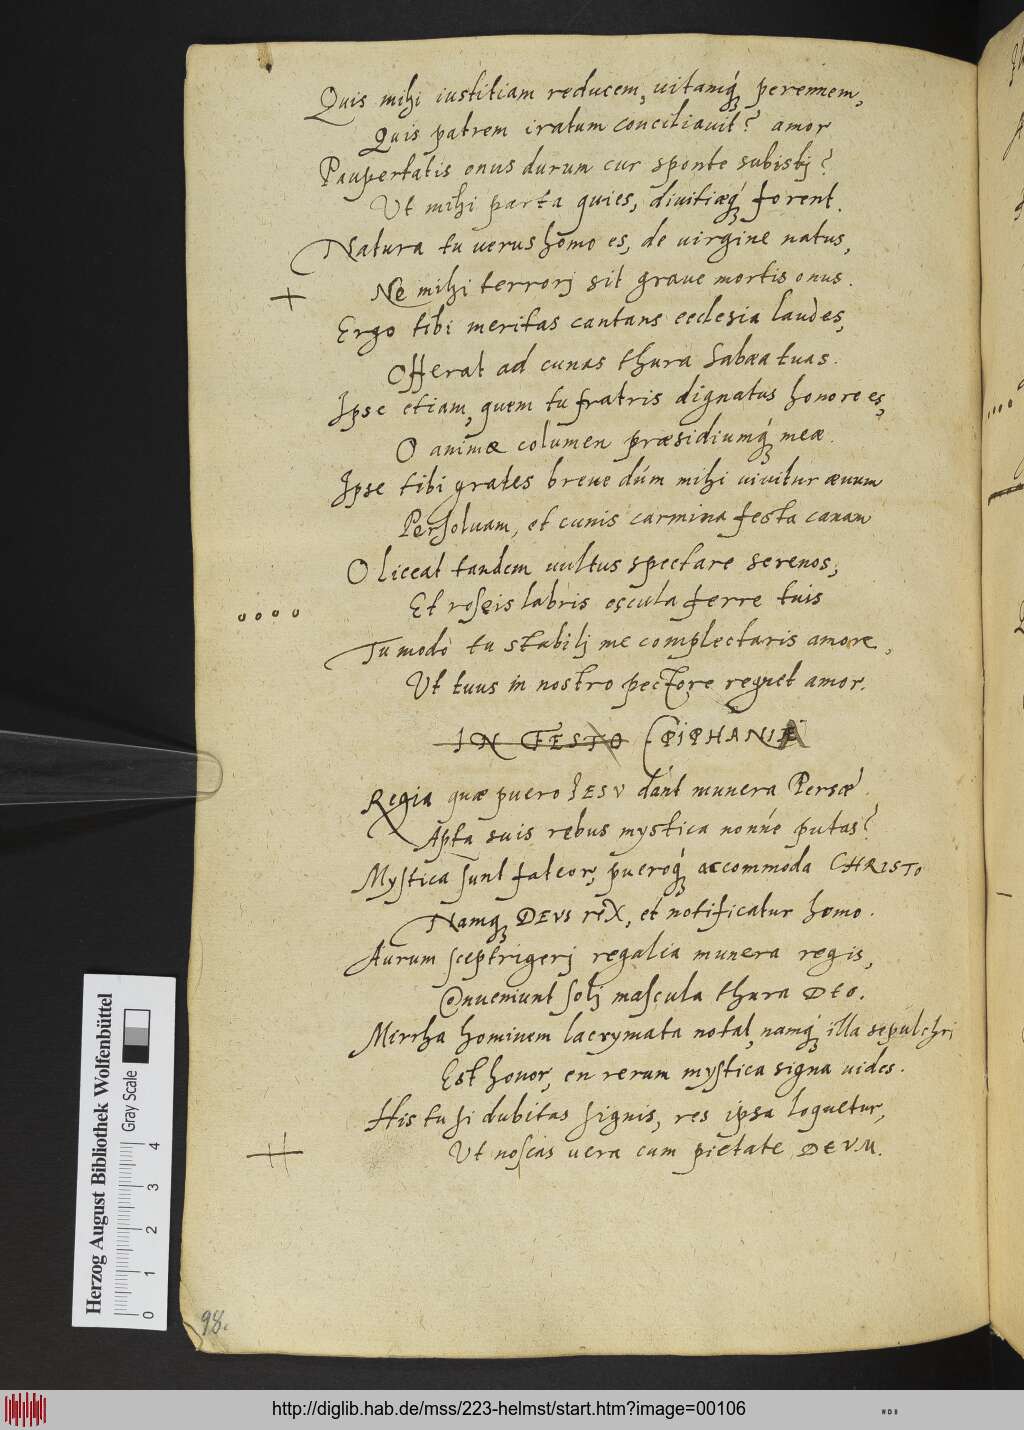 Quis mihi iustitiam reducem, uitamq́ꝫ perennem,
Quis patrem iratum conciliauit? amor
Paupertatis onus durum cur sponte subistj?
Ut mihi parta quies, diuitiæq́ꝫ forent.
Natura tu uerus homo es, de uirgine natus,
Ne mihi terrorj sit graue mortis onus.
Ergo tibi meritas cantans ecclesia laudes,
Offerat ad cunas thura Sabæa tuas.
Ipse etiam, quem tu fratris dignatus honore es,
O animæ columen præsidiumq́ꝫ meæ.
Ipse tibi grates breue dúm mihi uiuitur æuum
Persoluam, et cunis carmina festa canam
O liceat tandem uultus spectare serenos,
Et roseis labris oscula ferre tuis
Tu modò tu stabilj me complectaris amore,
Ut tuus in nostro pectore regnet amor.
IN FESTO EPIPHANIÆ
Regia quæ puero IESV dant munera Persæ
Apta suis rebus mystica nonné putas?
Mystica sunt fateor, pueroq́ꝫ accommoda CHRISTO
Namqꝫ DEVS reX, et notificatur homo.
Aurum sceptrigerj regalia munera regis,
Conueniunt solj mascula thura DEO.
Mirrha hominem lacrymata notat, namq́ꝫ illa sepulchri
Est honor, en rerum mystica signa uides.
His tu si dubitas signis, res ipsa loquetur,
Ut noscas uera cum pietate DEVM.
98.
Herzog August Bibliothek Wolfenbüttel
Gray Scale
0 1 2 3 4
http://diglib.hab.de/mss/223-helmst/start.htm?image=00106